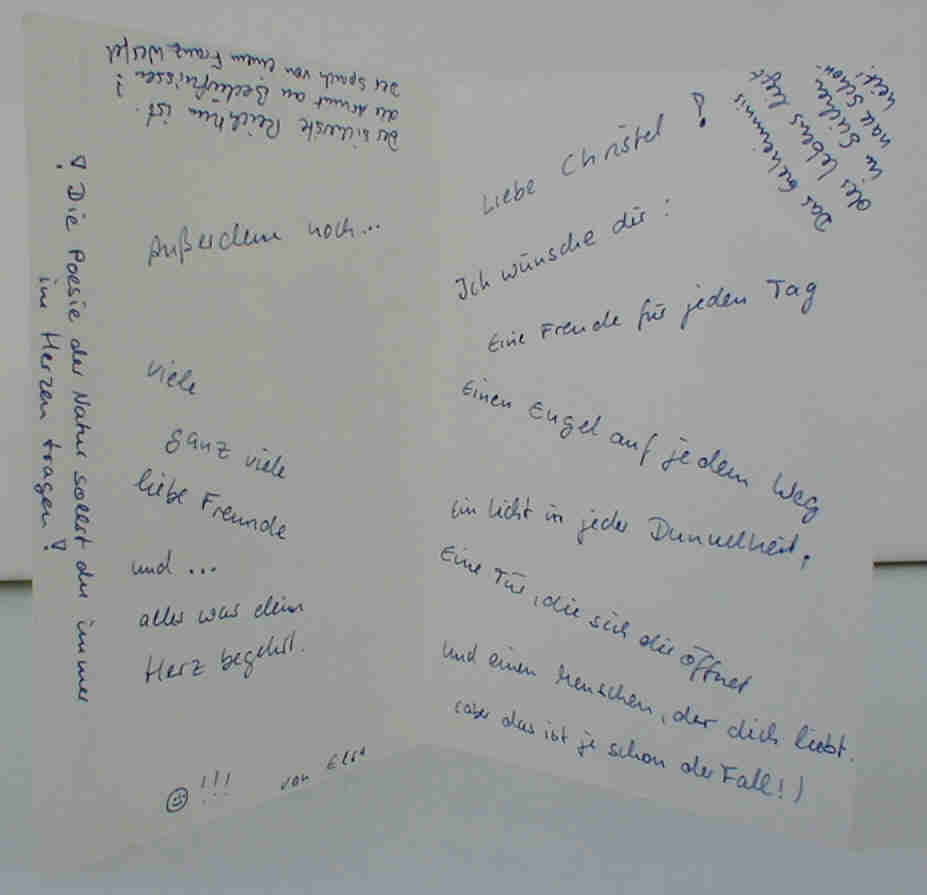 Liebe Christel !
Ich wünsche dir :
Eine Freude für jeden Tag
Einen Engel auf jedem Weg
Ein Licht in jeder Dunkelheit,
Eine Tür, die sich dir öffnet
und einen Menschen, der dich liebt.
(aber das ist ja schon der Fall!)
Das Geheimnis
des Lebens liegt
im Suchen
nach Schön-
heit!
Außerdem noch...
viele
ganz viele
liebe Freunde
und ...
alles was dein
Herz begehrt.
!!! von
! Die Poesie der Natur sollst du immer
im Herzen tragen!
Der sicherste Reichtum ist
die Armut an Bedürfnissen!
Der Spruch von einem Franz Werfel